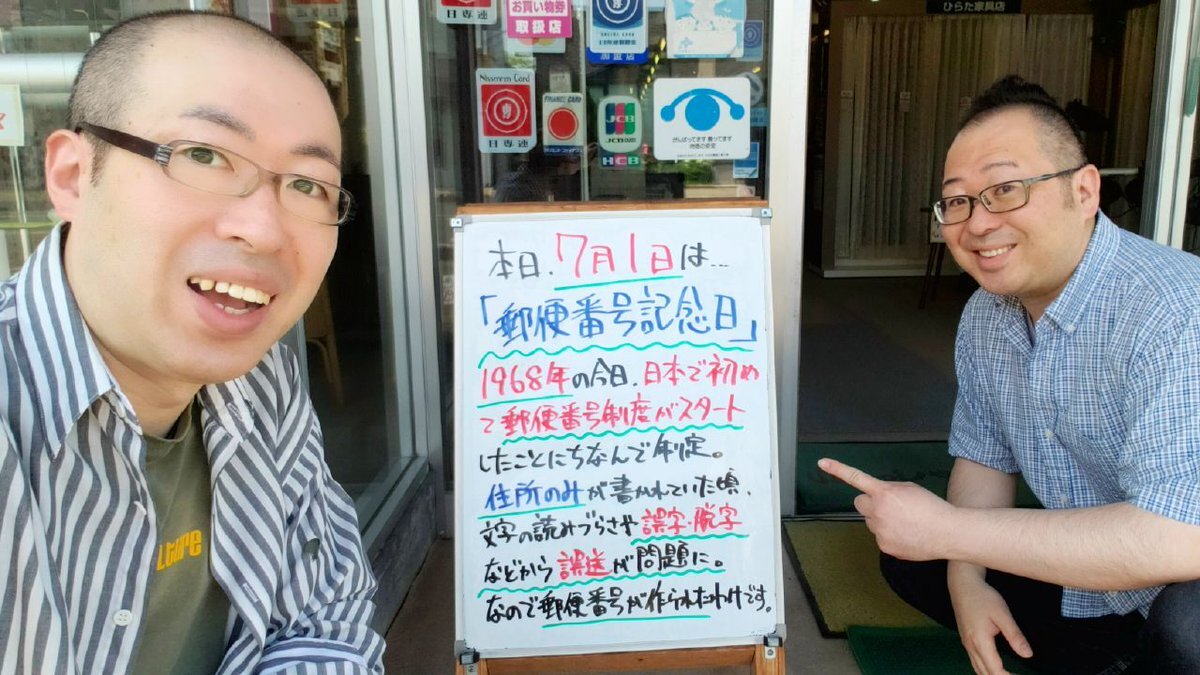 お買い物券
取扱店
日専連
加盟店
ひらた家具店
Nissenren Card
日専連
JCB
HCB
本日、7月1日は…
「郵便番号記念日」
1968年の今日、日本で初め
て郵便番号制度がスタート
したことにちなんで制定。
住所のみが書かれていた頃、
文字の読みづらさや誤字・脱字
などから誤送が問題に。
なので郵便番号が作られたわけです。